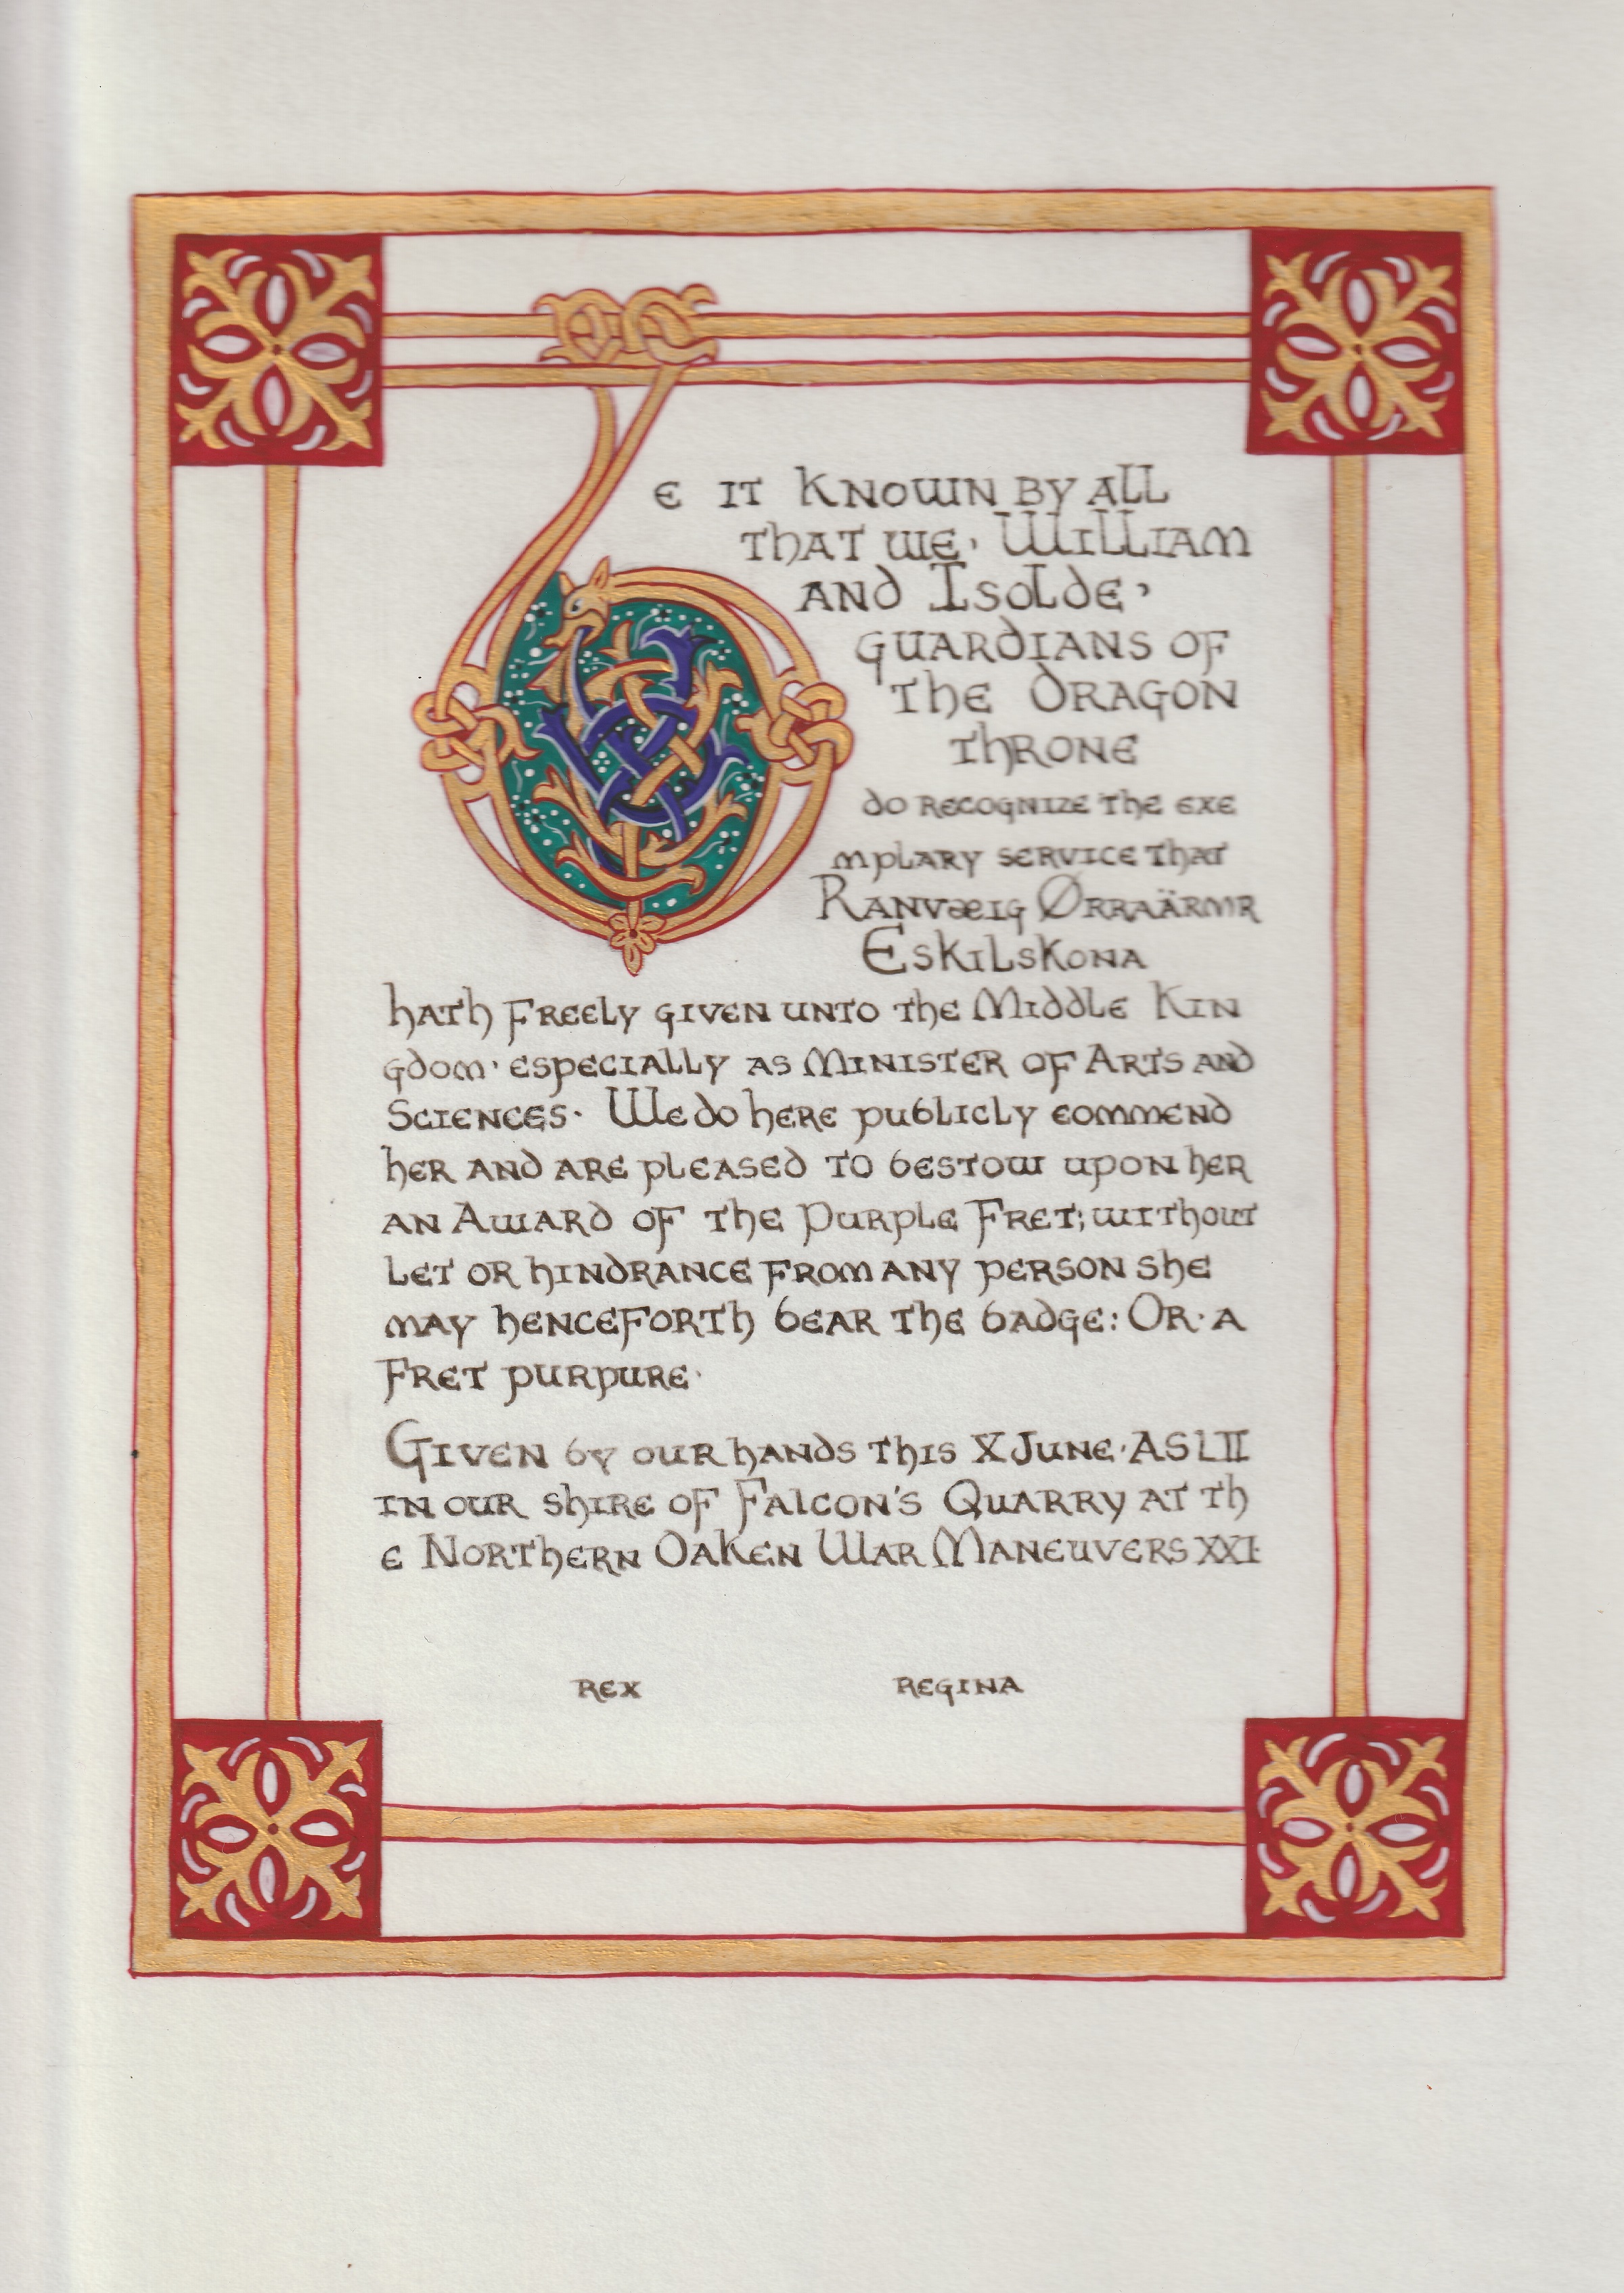 BE IT KNOWN BY ALL
THAT WE· WILLIAM
AND ISOLDE,
GUARDIANS OF
THE DRAGON
THRONE
DO RECOGNIZE THE EXE
MPLARY SERVICE THAT
RANVÆIG ØRRAÄRMR
ESKILSKONA
HATH FREELY GIVEN UNTO THE MIDDLE KIN
GDOM· ESPECIALLY AS MINISTER OF ARTS AND
SCIENCES· WE DO HERE PUBLICLY COMMEND
HER AND ARE PLEASED TO BESTOW UPON HER
AN AWARD OF THE PURPLE FRET; WITHOUT
LET OR HINDRANCE FROM ANY PERSON SHE
MAY HENCEFORTH BEAR THE BADGE: OR· A
FRET PURPURE·
GIVEN BY OUR HANDS THIS X JUNE· AS LII
IN OUR SHIRE OF FALCON'S QUARRY AT TH
E NORTHERN OAKEN WAR MANEUVERS XXI·
REX REGINA